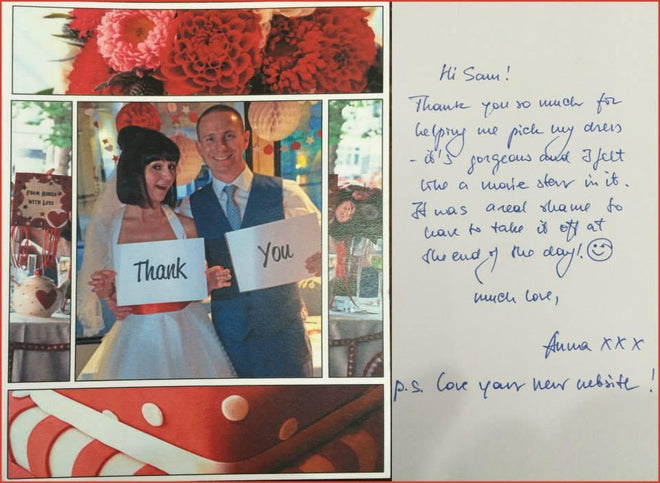 FROM RUSSIA
WITH LOVE
Thank
You
Hi Sam!
Thank you so much for
helping me pick my dress
- it's gorgeous and I felt
like a movie star in it.
It was a real shame to
have to take it off at
the end of the day!
much love,
Anna xxx
p.s. love your new website!